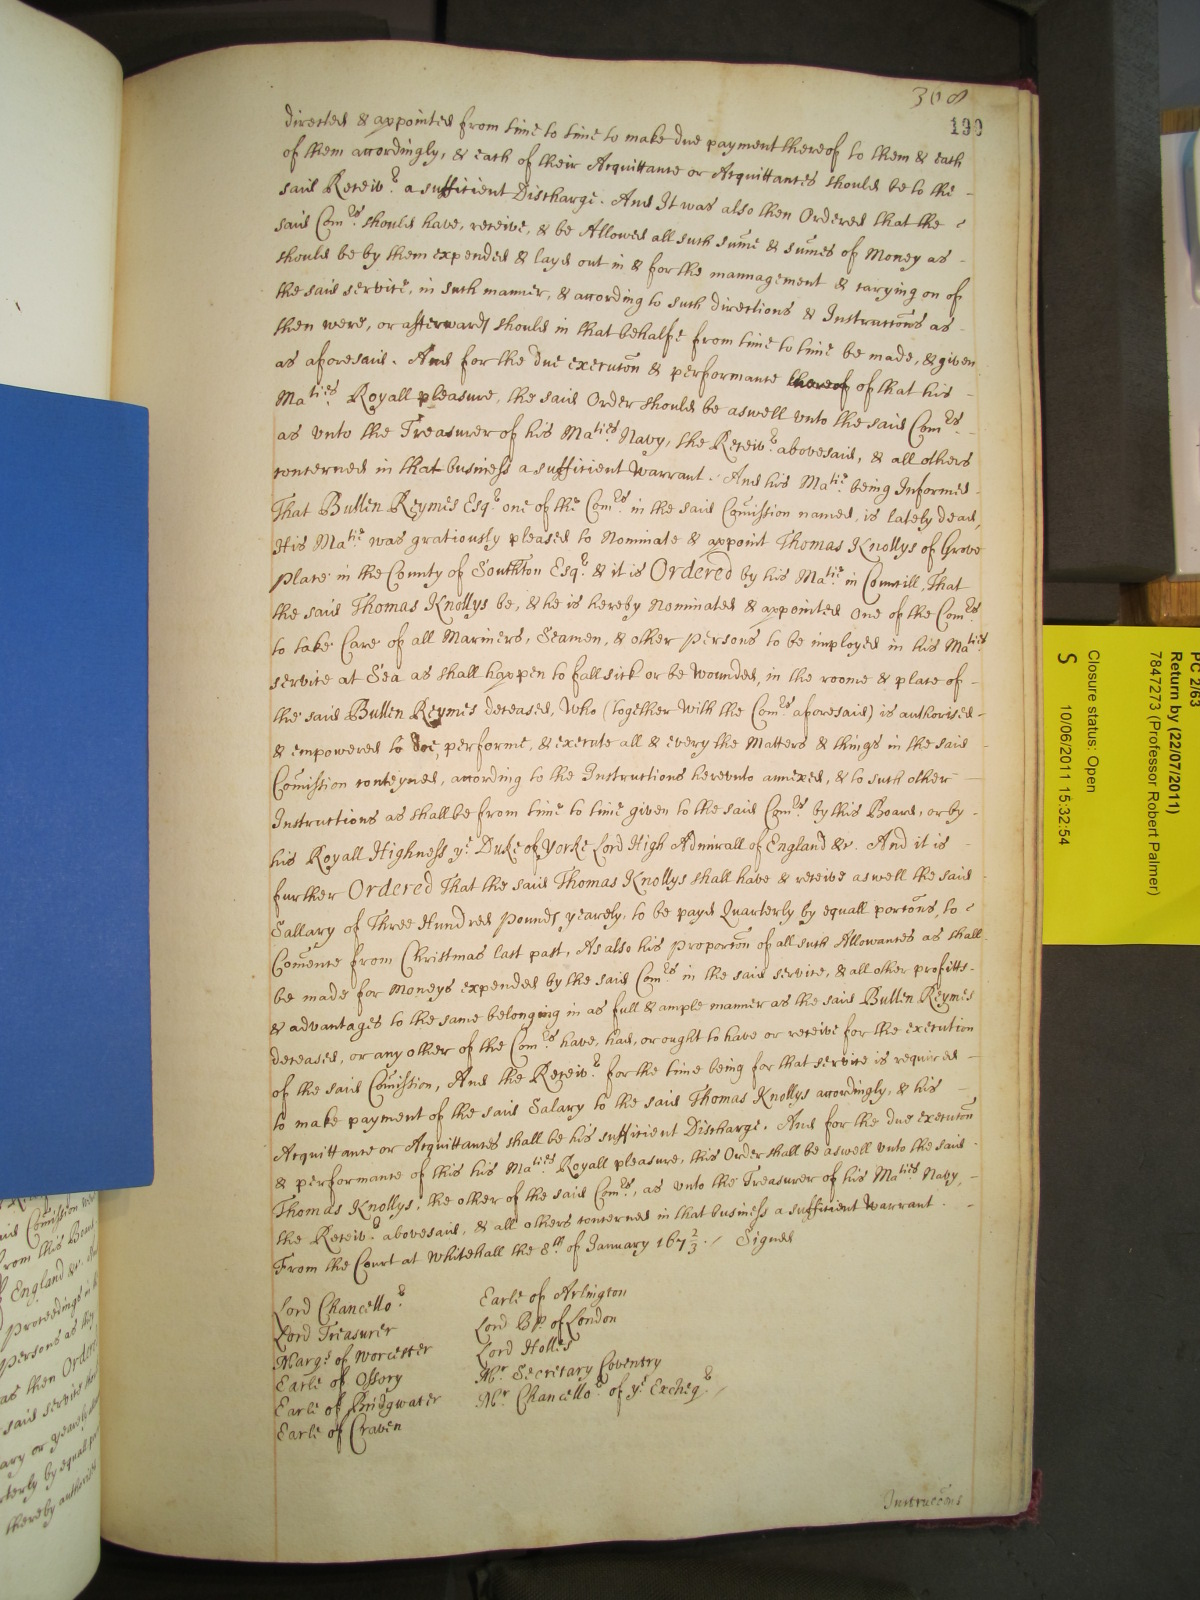 308
190
directed & appointed from time to time to make due payment thereof to them & each
of them accordingly, & each of their Acquittance or Acquittances should be to the -
said Receiv.r a sufficient Discharge. And It was also then Ordered that the -
said Com.rs should have, receive, & be Allowed all such sume & sumes of Money as -
should be by them expended & layd out in & for the mannagement & carying on of
the said service, in such manner, & according to such directions & Instructions as -
then were, or afterwards should in that behalfe from time to time be made, & given
as aforesaid. And for the due executon & performance thereof of that his -
Ma.ties Royall pleasure, the said Order should be aswell unto the said Com.rs -
as unto the Treasurer of his Ma.ties Navy, the Receiv.r abovesaid, & all others
concerned in that business a sufficient Warrant. And his Ma.tie being Informed -
That Bullen Reymes Esq.r one of the Com.rs in the said Comission named, is lately dead,
His Ma.tie was gratiously pleased to Nominate & appoint Thomas Knollys of Grove
place in the County of Southton Esq.r & it is Ordered by his Ma.tie in Councill, That
the said Thomas Knollys be, & he is hereby Nominated & appointed One of the Com.rs
to take Care of all Mariners, Seamen, & other persons to be imployed in his Ma.ties
service at Sea as shall happen to fall sick or be wounded, in the roome & place of -
the said Bullen Reymes deceased, Who (together with the Com.rs aforesaid) is authorised -
& empowered to doe, performe, & execute all & every the Matters & things in the said
Comission conteyned, according to the Instructions hereunto annexed, & to such other -
Instructions as shall be from time to time given to the said Com.rs by this Board, or by -
his Royall Highness y.e Duke of Yorke Lord High Admirall of England &c. And it is -
further Ordered That the said Thomas Knollys shall have & receive aswell the said -
Sallary of Three Hundred pounds yearely, to be payd Quarterly by equall portons, to -
Comence from Christmas last past, As also his proporton of all such Allowances as shall
be made for Moneys expended by the said Com.rs in the said service, & all other profitts -
& advantages to the same belonging in as full & ample manner as the said Bullen Reymes
deceased, or any other of the Com.rs have, had, or ought to have or receive for the execution
of the said Comission, And the Receiv.r for the time being for that service is required -
to make payment of the said Salary to the said Thomas Knollys accordingly, & his -
Acquittance or Acquittances shall be his sufficient Discharge. And for the due executon
& performance of this his Ma.ties Royall pleasure, this Order shall be aswell unto the said -
Thomas Knollys, the other of the said Com.rs, as unto the Treasurer of his Ma.ties Navy, -
the Receiv.r abovesaid, & all others concerned in that business a sufficient Warrant. -
From the Court at Whitehall the 8.th of January 167 2/3. / Signed
Lord Chancello.r Earle of Arlington
Lord Treasurer Lord Bp. of London
Marq.s of Worcester Lord Holles
Earle of Ossory M.r Secretary Coventry
Earle of Bridgwater M.r Chancello.r of y.e Excheq.r
Earle of Craven
Instruccons
PC 2/63
Return by (22/07/2011)
7847273 (Professor Robert Palmer)
Closure status: Open
S 10/06/2011 15:32:54